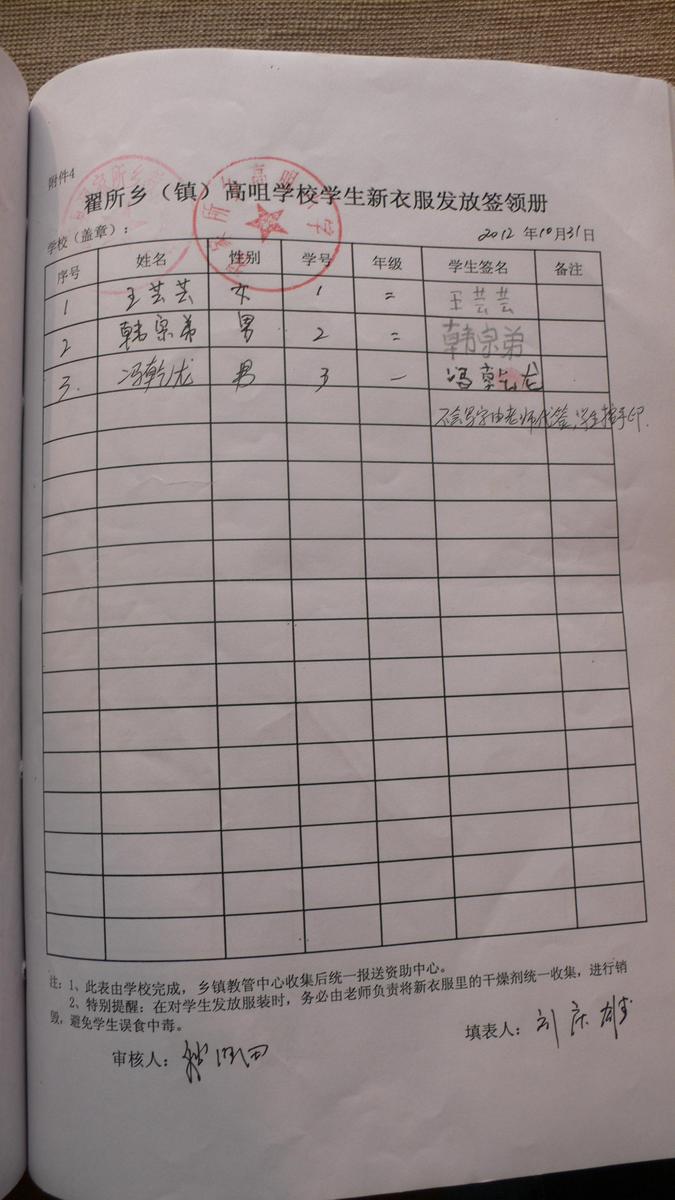 附件4
翟所乡（镇）高咀学校学生新衣服发放签领册
学校（盖章）： 2012 年 10 月 31 日
序号 姓名 性别 学号 年级 学生签名 备注
1 王芸芸 女 1 二 王芸芸
2 韩宗弟 男 2 二 韩宗弟
3. 冯乾龙 男 3 一 冯乾龙
不会写字由老师代签，学生摁手印.
注：1、此表由学校完成，乡镇教管中心收集后统一报送资助中心。
2、特别提醒：在对学生发放服装时，务必由老师负责将新衣服里的干燥剂统一收集，进行销
毁，避免学生误食中毒。
填表人：刘庆雄
审核人：